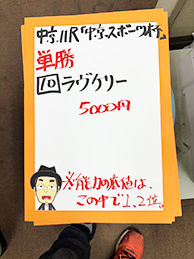 中京11R「中京スポーツ杯」
単勝
10ラヴケリー
5000円
※能力の数値は、
この中で1、2位。